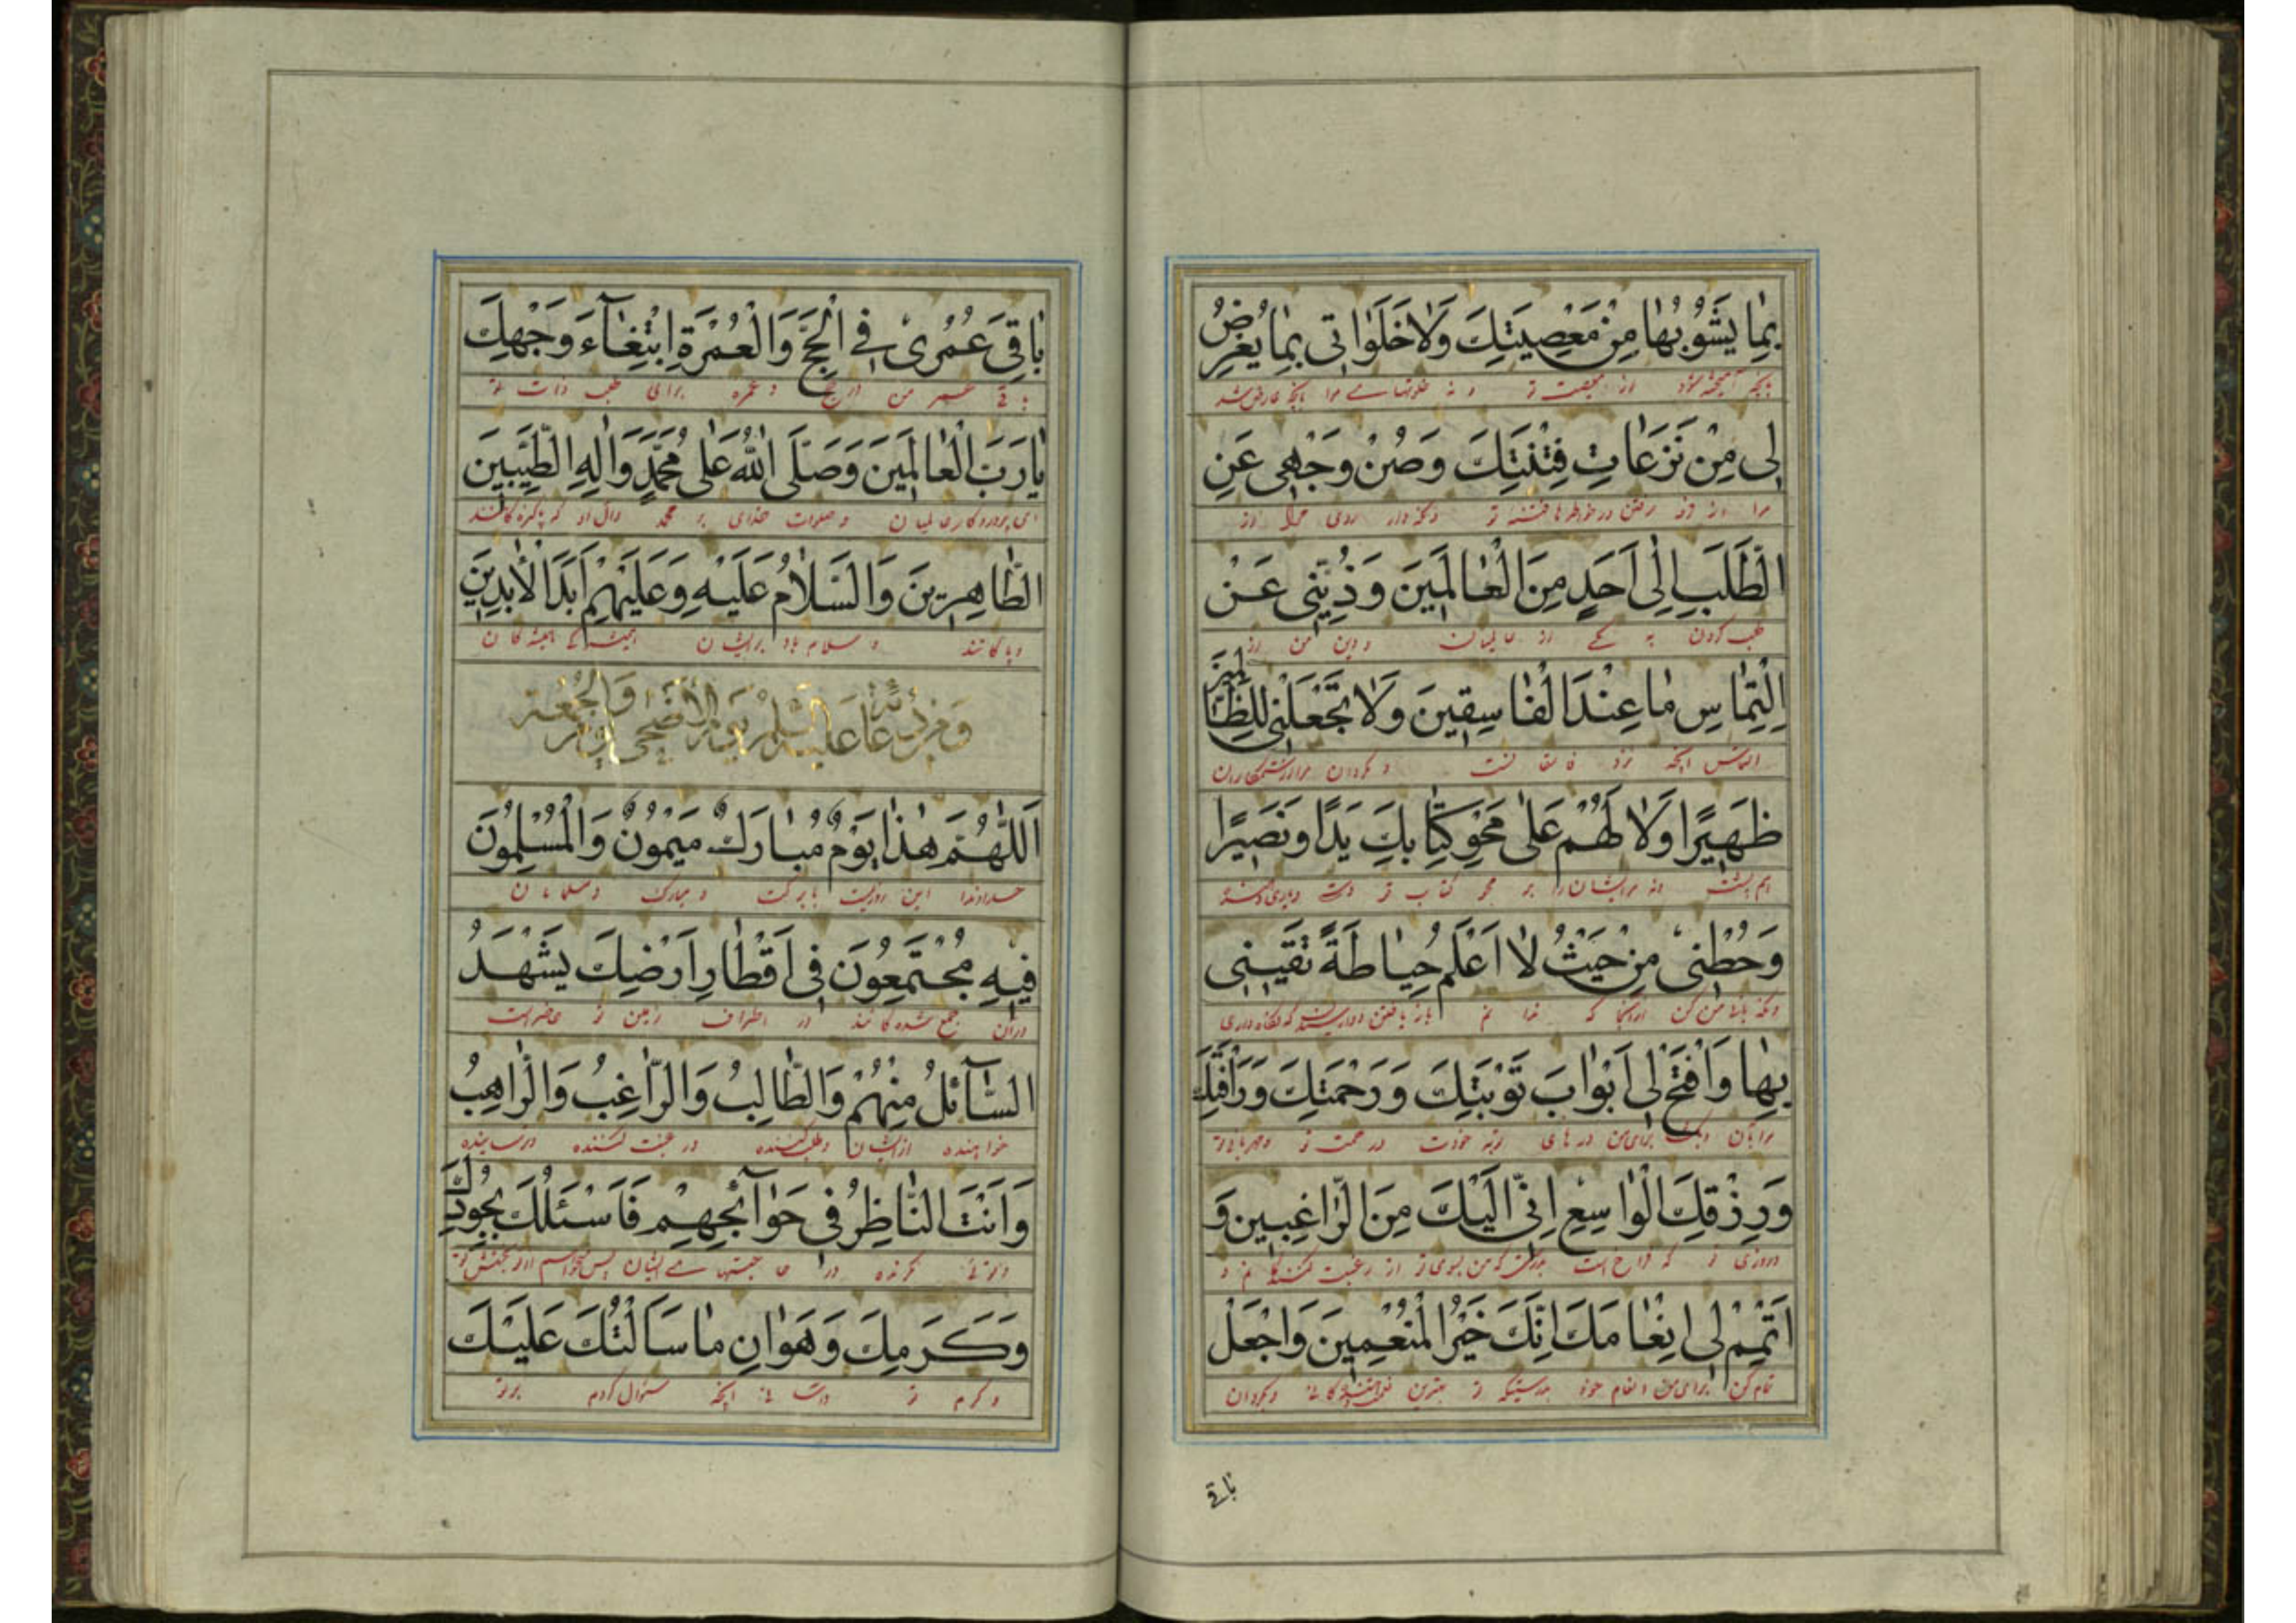 بِمٰا يَشُوبُهٰا مِنْ مَعْصِيَتِكَ وَلاٰ خَلَوٰاتى بِمٰا يَعْرِضُ
بانچه آمیخته شود از معصیت تو و نه خلوتهای مرا بانچه عارض شد
لى مِنْ نَزَعٰاتِ فِتْنَتِكَ وَصُنْ وَجْهى عَنِ
مرا از فتنه تو و نگه دار روی مرا از
الطَّلَبِ اِلٰى اَحَدٍ مِنَ الْعٰالَمينَ وَذُبَّنى عَنْ
طلب کردن به یکی از عالمیان من از
اِلْتِمٰاسِ مٰا عِنْدَ الْفٰاسِقينَ وَلاٰ تَجْعَلْنى لِلظّٰالِمينَ
التماس آنچه نزد فاسقانست و مگردان مرا از ستمکاران
ظَهيرًا وَلاٰ لَهُمْ عَلٰى مَحْوِ كِتٰابِكَ يَدًا وَنَصيرًا
هم پشت و نه مر ایشان را بر محو کتاب تو دست
وَحُطْنى مِنْ حَيْثُ لاٰ اَعْلَمُ حِيٰاطَةً تَقينى
من کن از آنجا که ندانم که نگاه داری
بِهٰا وَافْتَحْ لى اَبْوٰابَ تَوْبَتِكَ وَرَحْمَتِكَ وَرَاْفَتِكَ
مرا بآن برای من درهای توبه خودت و رحمت تو و مهربانی تو
وَرِزْقِكَ الْوٰاسِعِ اِنّى اِلَيْكَ مِنَ الرّٰاغِبينَ وَ
و روزی تو که فراخ است بدرستی که من بسوی تو از رغبت کنندگانم و
اَتْمِمْ لى اِنْعٰامَكَ اِنَّكَ خَيْرُ الْمُنْعِمينَ وَاجْعَلْ
تمام کن برای من انعام خود بدرستیکه تو بهترین و بگردان
باقی
بٰاقِىَ عُمُرى فِى الْحَجِّ وَالْعُمْرَةِ ابْتِغٰآءَ وَجْهِكَ
باقی عمر من در حج و عمره برای طلب ذات تو
يٰا رَبَّ الْعٰالَمينَ وَصَلَّى اللّٰهُ عَلٰى مُحَمَّدٍ وَاٰلِهِ الطَّيِّبينَ
ای پروردگار عالمیان و صلوات خدای بر محمد و آل او که پاکیزه‌گانند
الطّٰاهِرينَ وَالسَّلاٰمُ عَلَيْهِ وَعَلَيْهِمْ اَبَدَ الْاٰبِدينَ
و پاکانند و سلام باد بر ایشان همیشه
وَمِنْ دُعٰائِهِ عَلَيْهِ السَّلٰمُ يَوْمَ الْاَضْحٰى وَالْجُمُعَةِ
اَللّٰهُمَّ هٰذٰا يَوْمٌ مُبٰارَكٌ مَيْمُونٌ وَالْمُسْلِمُونَ
خداوندا این روزیست با برکت و مبارک و مسلمانان
فيهِ مُجْتَمِعُونَ فى اَقْطٰارِ اَرْضِكَ يَشْهَدُ
در آن جمع شده‌گانند در اطراف زمین تو حاضر است
السّٰآئِلُ مِنْهُمْ وَالطّٰالِبُ وَالرّٰاغِبُ وَالرّٰاهِبُ
خواهنده از ایشان و طلب کننده و رغبت کننده و ترساینده
وَاَنْتَ النّٰاظِرُ فى حَوٰآئِجِهِمْ فَاَسْئَلُكَ بِجُودِكَ
و توئی نگرنده در حاجتهای ایشان پس از تو
وَكَرَمِكَ وَهَوٰانِ مٰا سَاَلْتُكَ عَلَيْكَ
و کرم تو آنچه سئوال کردم بر تو